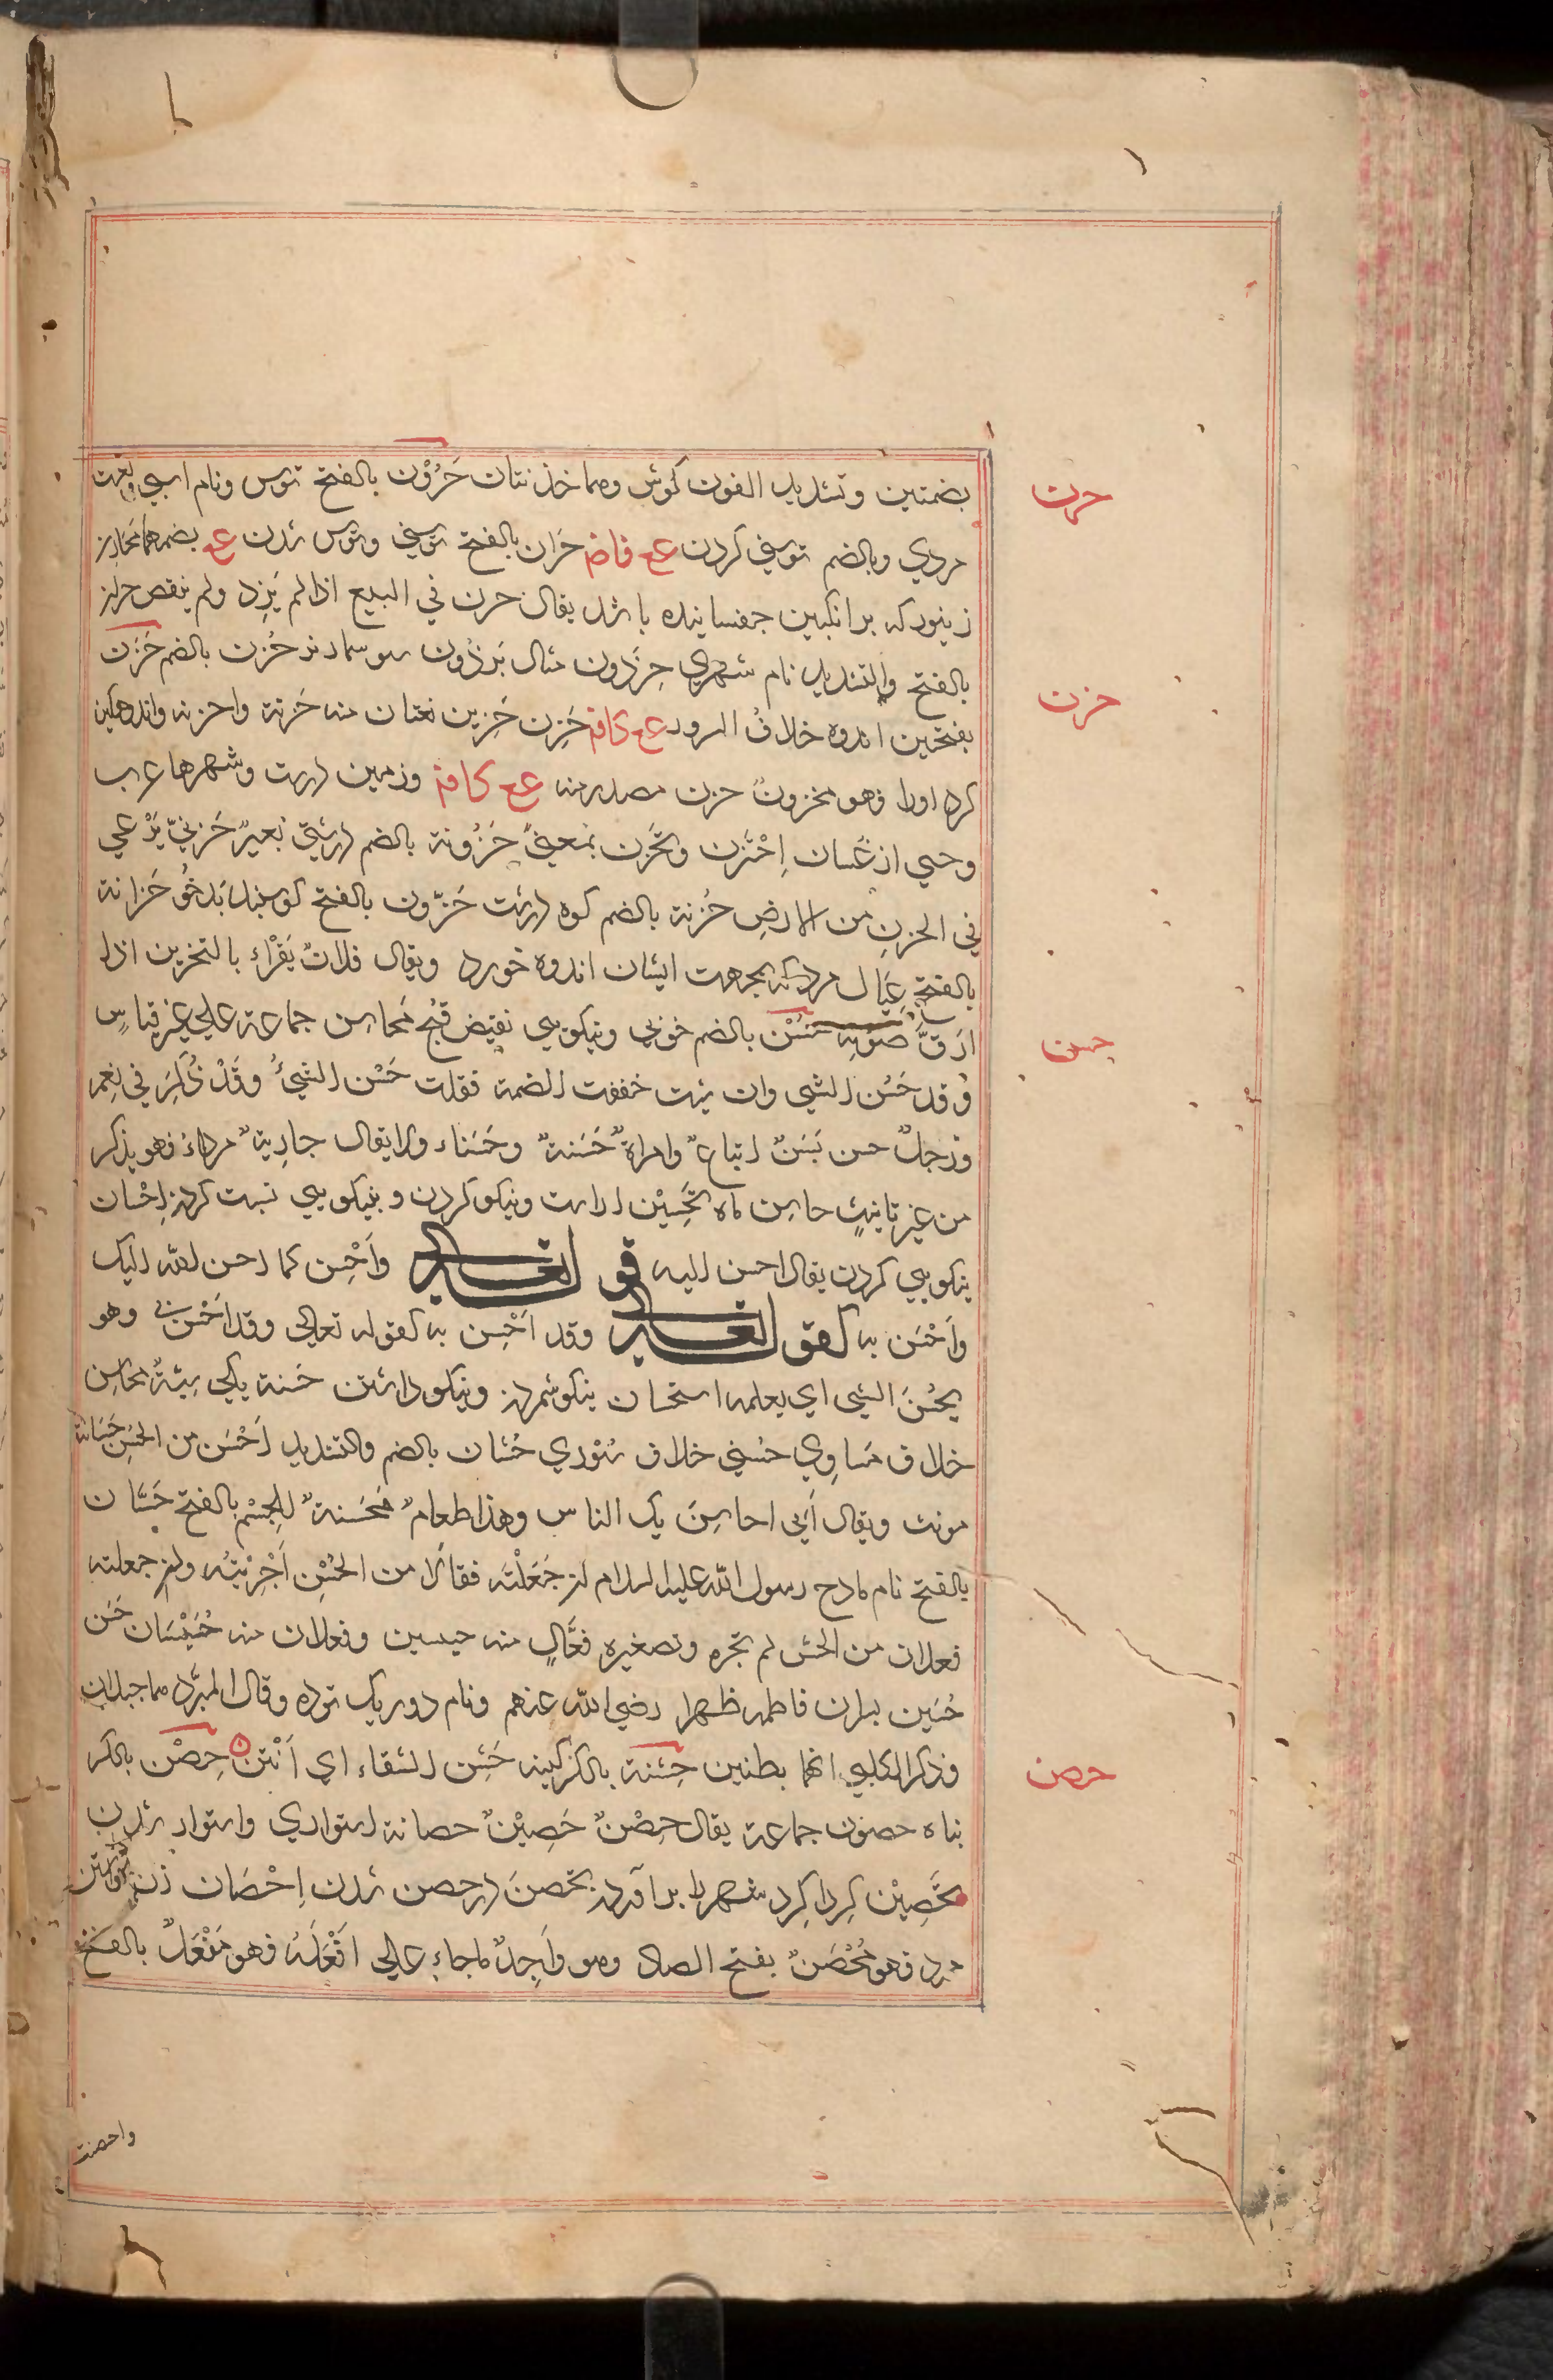 بضمتين وتشديد النون كوش وهما خذنتان حَرُوْن بالفتح توسن ونام اسپي ولغت
حرن
مردي وبالضم توسني كردن عع فاض حَرَان بالفتح توسني وتوسن شدن عع بضمهما مَحَارِن
زنبور كه بر انكبين جفسانيده باشد يقال حرن في البيع اذا لم يَزِد ولم ينقص حران
بالفتح والتشديد نام شهري حِرْذَون مثال بَرْذَون سوسمار نر حُزن بالضم حَزَن
حزن
بفتحين اندوه خلاف السرور عع كافة حَزِن حَزِين نعتان منه حَزنة واحزنه واندوهكين
كرد اورا فهو محزونٌ حزن مصدر منه عع كافة وزمين درشت وشهرها عرب
وحيي از غَسان اِحْتَزن وتَحَزن بمعنىً حَزُونة بالضم درشتي بَعيرٌ حَزنيٌّ يَرْعى
في الحزنِ من الارضِ حُزنة بالضم كوه درشت حَزّون بالفتح كوسپند بَدخُو حَزانة
بالفتح عِيَال مرد كه بجهت ايشان اندوه خورد ويقال فلانٌ يَقْرَاء بالتحزين اذا
ارَقَّ صَوْته حُسْن بالضم خوبي ونيكويي نقيض قُبْح مَحاسِن جماعة على غير قياسٍ
حسن
وقد حَسُن الشي وان شيت خففت الضمة فقلت حَسْن الشيُ وقَدْ ذُكِرَ في نِعم
ورجلٌ حسن بَسَنٌ اتباعٌ وامراةٌ حَسَنةٌ وحَسْناء ولا يقال جارِيةٌ مرداءُ فهو يذكر
من غير تانيثٍ حاسِن ماه تَحْسِيْن اراست ونيكو كردن وبنيكويي نسبت كردن اِحْسان
نيكويي كردن يقال احسن اليه قو لتعالى وَاَحْسِن كما احسن الله اليك
واَحْسَن به كقو لتعالى وقد اَحْسن به كقوله تعالى وقد اَحْسن بي وهو
يحُسن الشي اي يعلمه استحسان نيكو شمردن ونيكو داشتن حَسنة يكي سيّئةٌ محاسِن
خلاف مَساوِي حسنى خلاف سُوْءي حُسّان بالضم والتشديد اَحْسَن من الحُسْن حَسَانة
مونث ويقال اِنّي احاسِنَ بك الناس وهذا طعامٌ مَحْسَنةٌ للجِسْم بالفتح حَسّان
بالفتح نام مادح رسول الله عليه السلام ان جَعَلْتَه فقالا من الحُسْنِ اَجْرَيْتَه وان جعلته
فعلان من الحسّ لم تجره وتصغيره فَعَّالٍ منه حسيسين وفعلان منه حُسَيْسَان حَسَن
حُسَين پسران فاطمه ظهرا رضي الله عنهم ونام دو ريك توده وقال المبرّد هما جبلان
وذكر الكلبي انهما بطنين حِشنة بالكسر كينه حَشِن السقاء اي اَنْتَن حِصْن بالكسر
حصن
پناه حصون جماعة يقال حِصْنٌ حَصِيْنٌ حصانة استواري واستوار شدن
تَحْصِيْن كِرداكِرد شهر را براوردن تحصن در حصن شدن اِحْصَان زن خواستن
مرد فهو مُحْصَنٌ بفتح الصاد وهو واَحِدٌ ماجاء على افْعَلَهُ فهو مَفْعَلٌ بالفتح
واحصنت